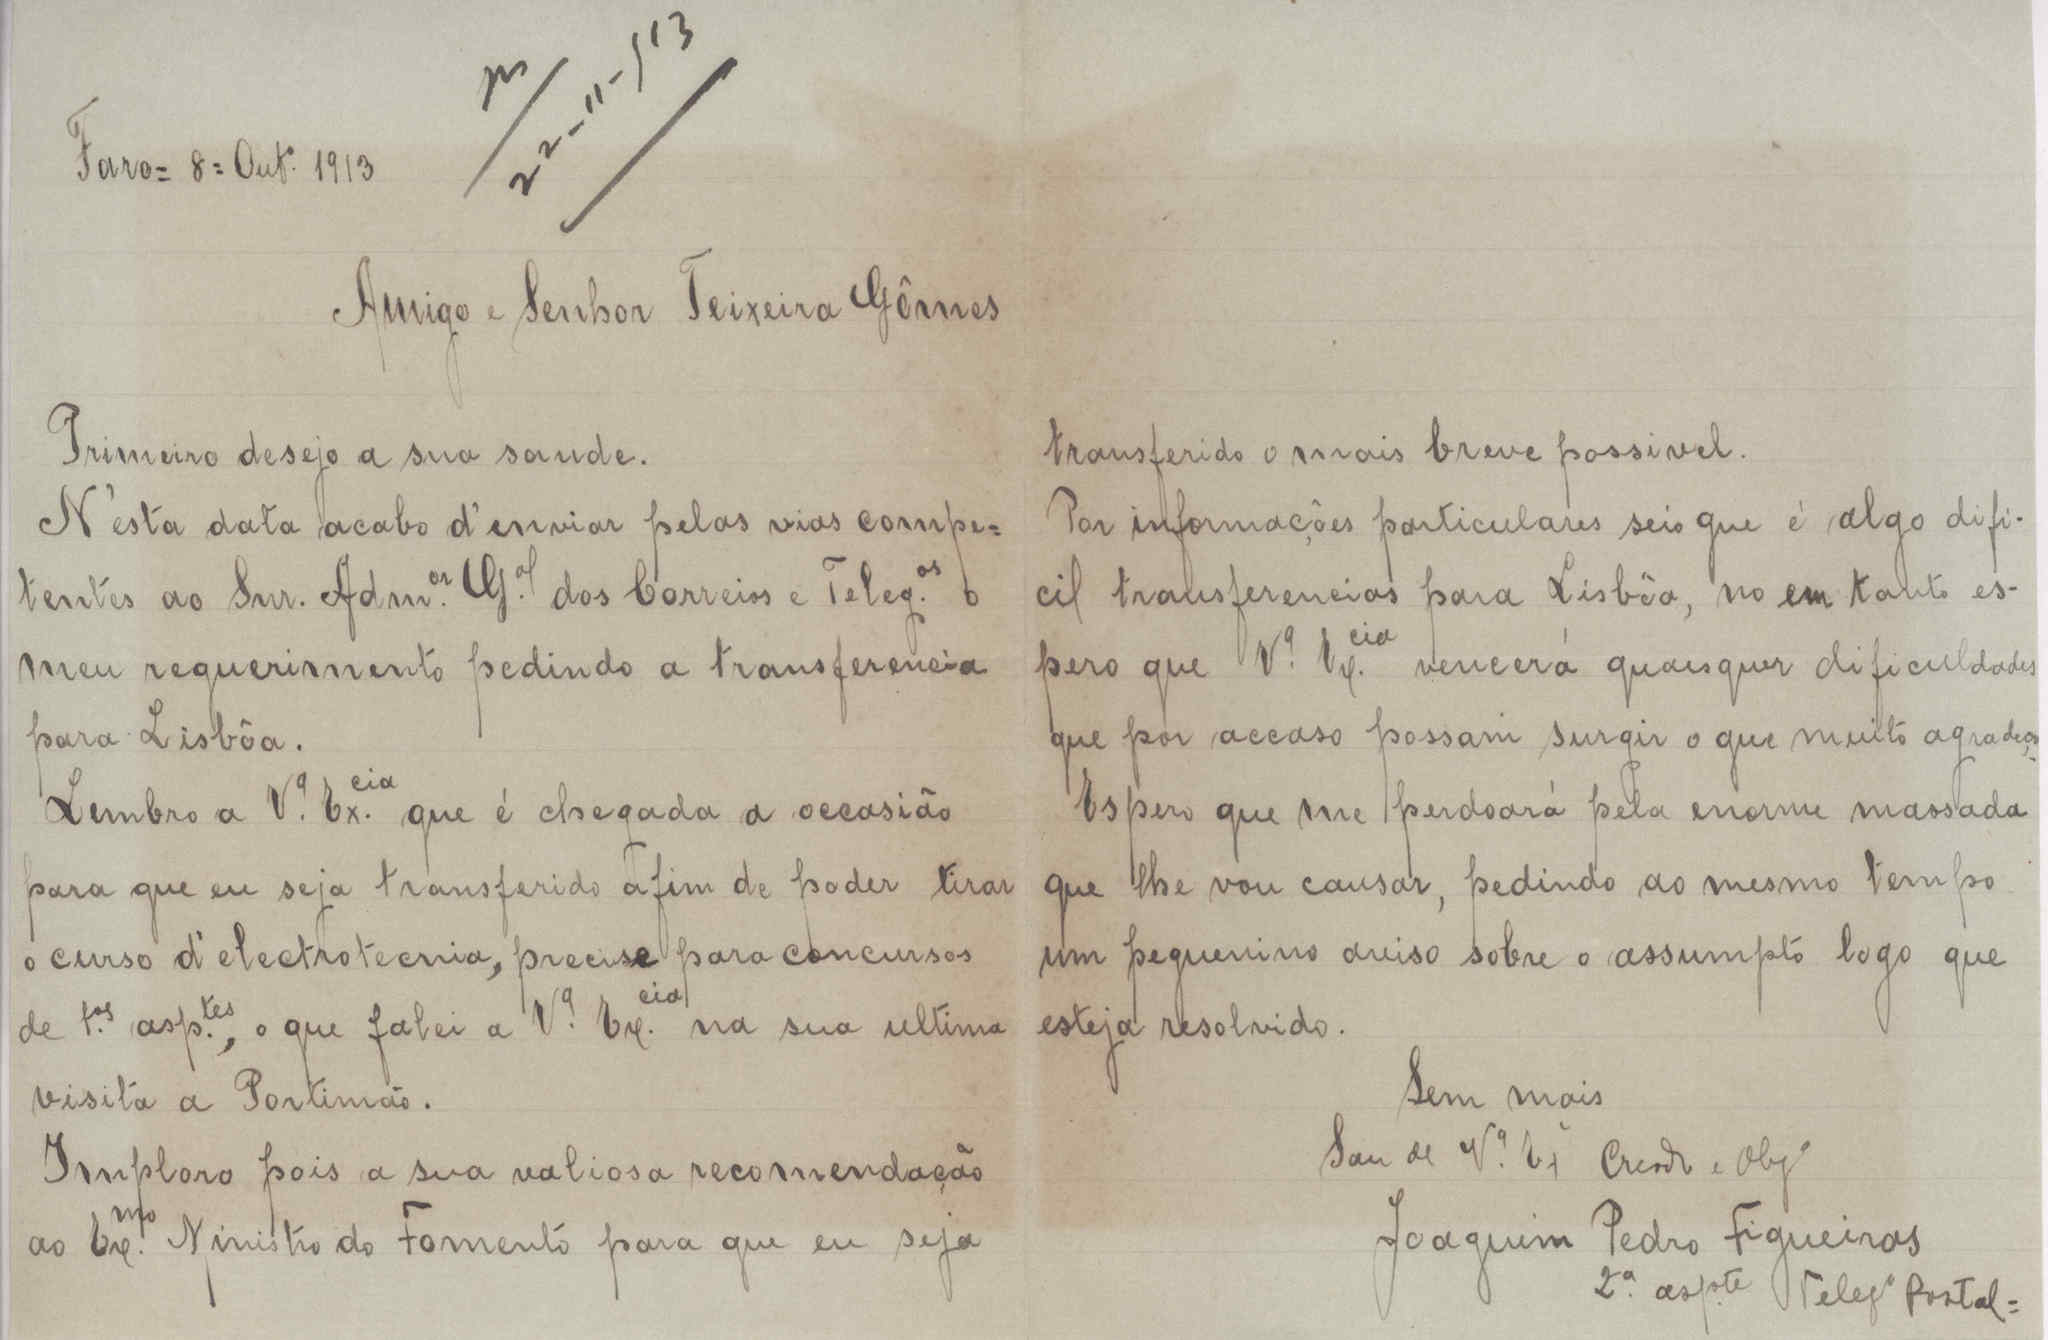 22-11-913
Faro= 8= Out.º 1913
Amigo e Senhor Teixeira Gômes
Primeiro desejo a sua saude.
N'esta data acabo d'enviar pelas vias compe=
tentes ao Snr. Adm.or G.al dos Correios e Teleg.os o
meu requerimento pedindo a transferencia
para Lisbôa.
Lembro a V.ª Ex.cia que é chegada a occasião
para que eu seja transferido afim de poder tirar
o curso d'electrotecnia, preciso para concursos
de 1.os asp.tes, o que falei a V.ª Ex.cia na sua ultima
visita a Portimão.
Imploro pois a sua valiosa recomendação
ao Ex.mo Ministro do Fomento para que eu seja
transferido o mais breve possivel.
Por informações particulares seio que é algo difi-
cil transferencias para Lisbôa, no em tanto es-
pero que V.ª Ex.cia vencerá quaesquer dificuldades
que por accaso possam surgir o que muito agradeço.
Espero que me perdoará pela enorme massada
que lhe vou causar, pedindo ao mesmo tempo
um pequenino aviso sobre o assumpto logo que
esteja resolvido.
Sem mais
Sou de V.ª Ex.ª Creado e Obg.º
Joaquim Pedro Figueiras
2.º asp.te Teleg.º Postal=